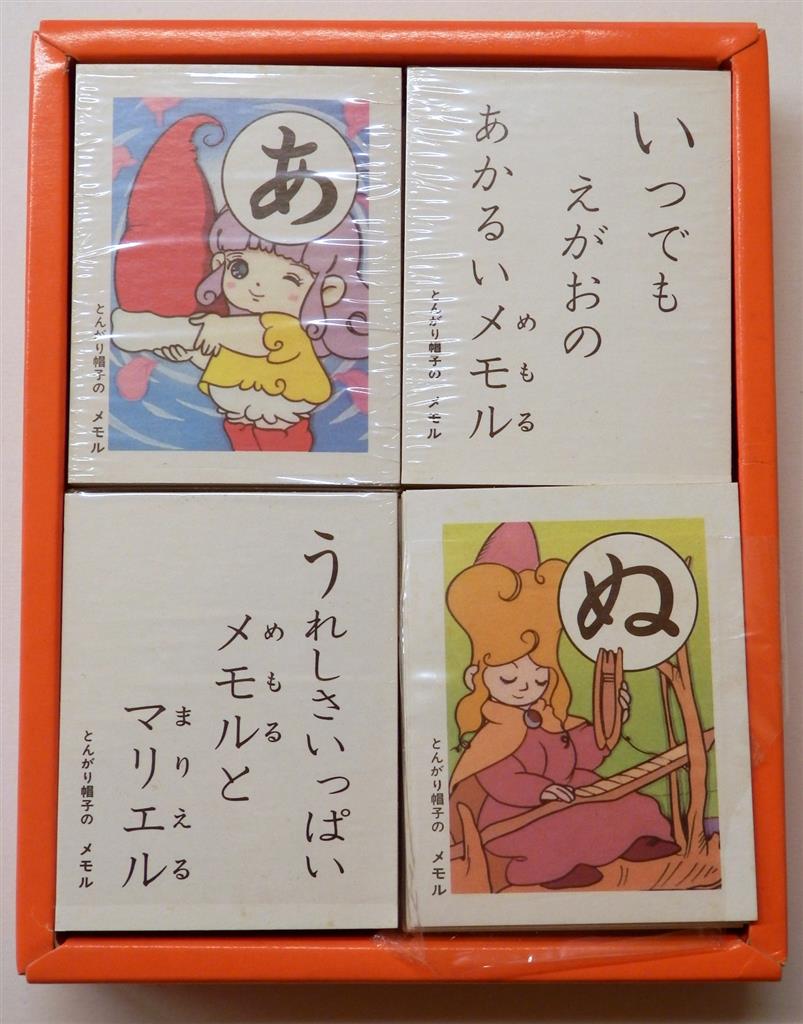 あ
とんがり帽子の メモル
いつでも
えがおの
あかるいメモル
めもる
とんがり帽子の メモル
うれしさいっぱい
メモルと
めもる
マリエル
まりえる
とんがり帽子の メモル
ぬ
とんがり帽子の メモル